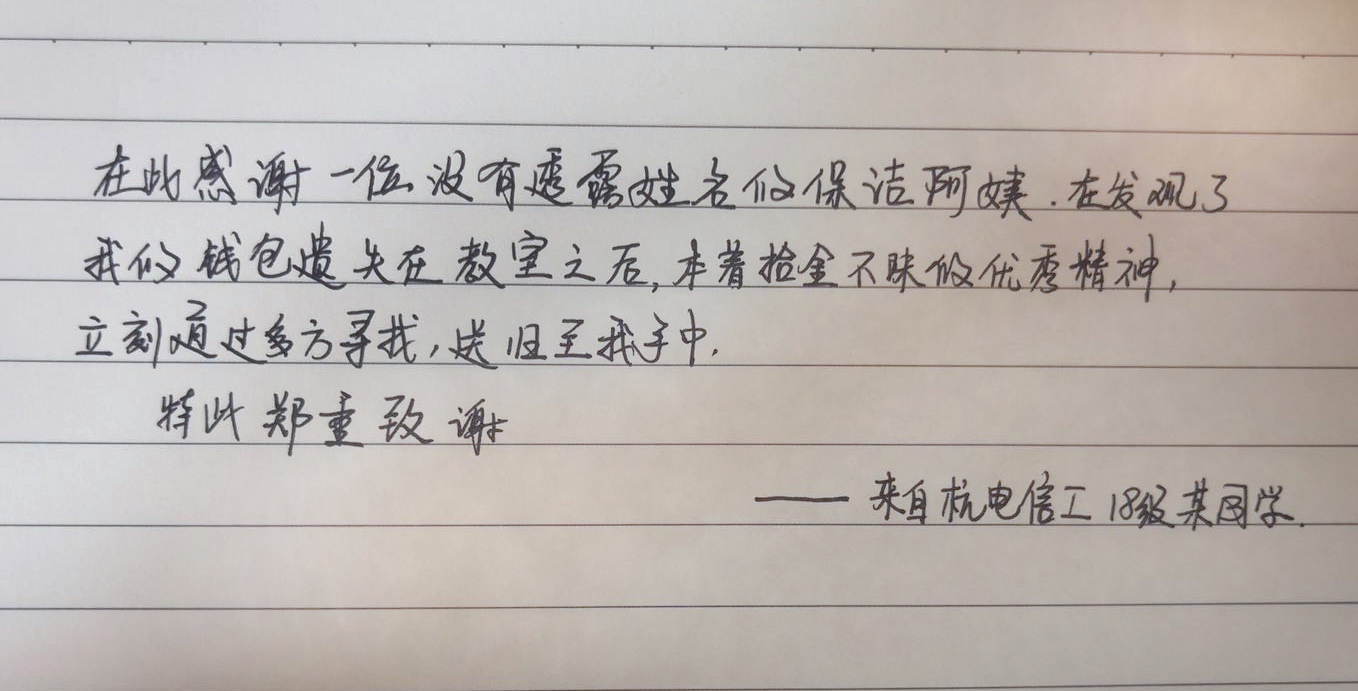 在此感谢一位没有透露姓名的保洁阿姨.在发现了
我的钱包遗失在教室之后,本着拾金不昧的优秀精神,
立刻通过多方寻找,送归至我手中.
特此郑重致谢
——来自杭电信工18级某同学.